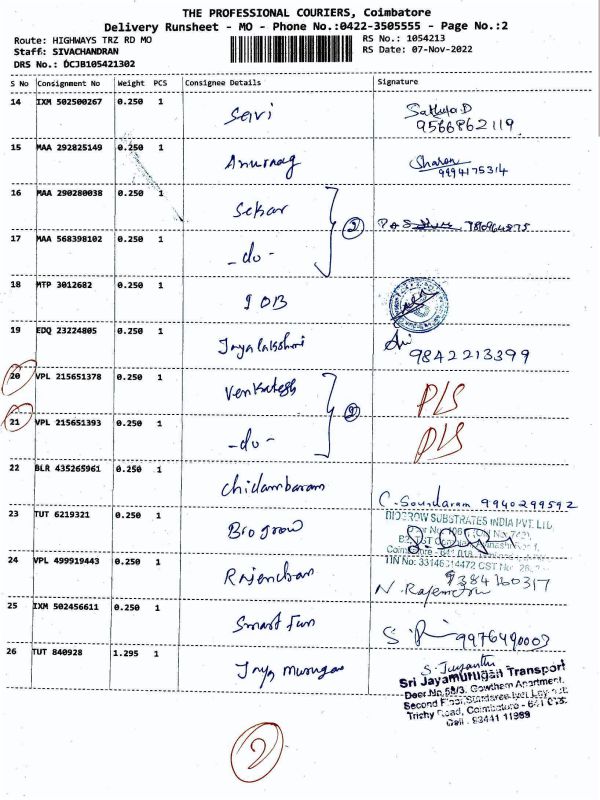 THE PROFESSIONAL COURIERS, Coimbatore
Delivery Runsheet - MO - Phone No.:0422-3505555 - Page No.:2
Route: HIGHWAYS TRZ RD MO RS No.: 1054213
Staff: SIVACHANDRAN RS Date: 07-Nov-2022
DRS No.: DCJB105421302
S No Consignment No Weight PCS Consignee Details Signature
14 IXM 502500267 0.250 1 Savi
9566862119
15 MAA 292825149 0.250 1 Anurag Sharon
9994175314
16 MAA 290280038 0.250 1 Sekar
②
17 MAA 568398102 0.250 1 -do-
18 MTP 3012682 0.250 1 IOB
19 EDQ 23224805 0.250 1 Jayalakshmi
9842213399
20 VPL 215651378 0.250 1 Venkatesh P/S
②
21 VPL 215651393 0.250 1 -do- P/S
22 BLR 435265961 0.250 1 Chidambaram C. Soundaram 9940299592
23 TUT 6219321 0.250 1 Biogrow
SUBSTRATES INDIA PVT. LTD.
24 VPL 499919443 0.250 1 Rajendran 9384760317
25 IXM 502456611 0.250 1 Smart Fun 9976490009
26 TUT 840928 1.295 1 Jaya Murugan S. Jayanthi
Sri Jayamurugan Transport
Door No.58/3, Gowtham Apartment,
Trichy Road, Coimbatore - 641
Cell : 93441 11989
②